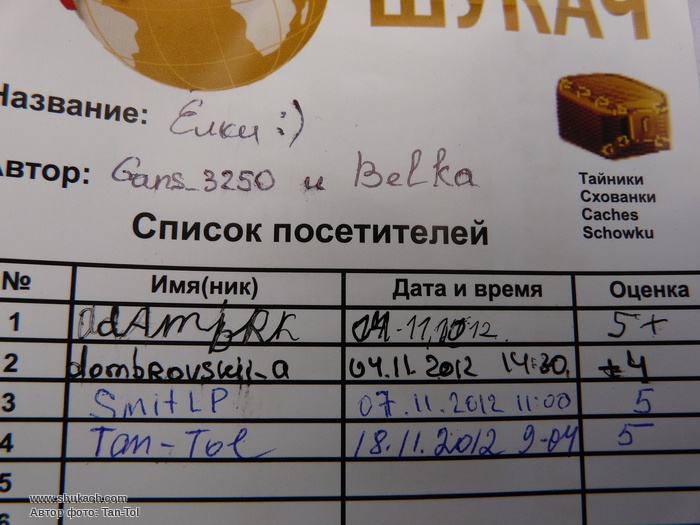 ШУКАЧ
Название: Ёлки :)
Автор: Gans_3250 и Belka
Тайники
Схованки
Caches
Schowku
Список посетителей
№ Имя(ник) Дата и время Оценка
1 04.11.2012 5+
2 dombrovskij_a 04.11.2012 14:30 4
3 SmitLP 07.11.2012 11:00 5
4 Tan-Tol 18.11.2012 9-04 5
5
6
www.shukach.com
Автор фото: Tan-Tol